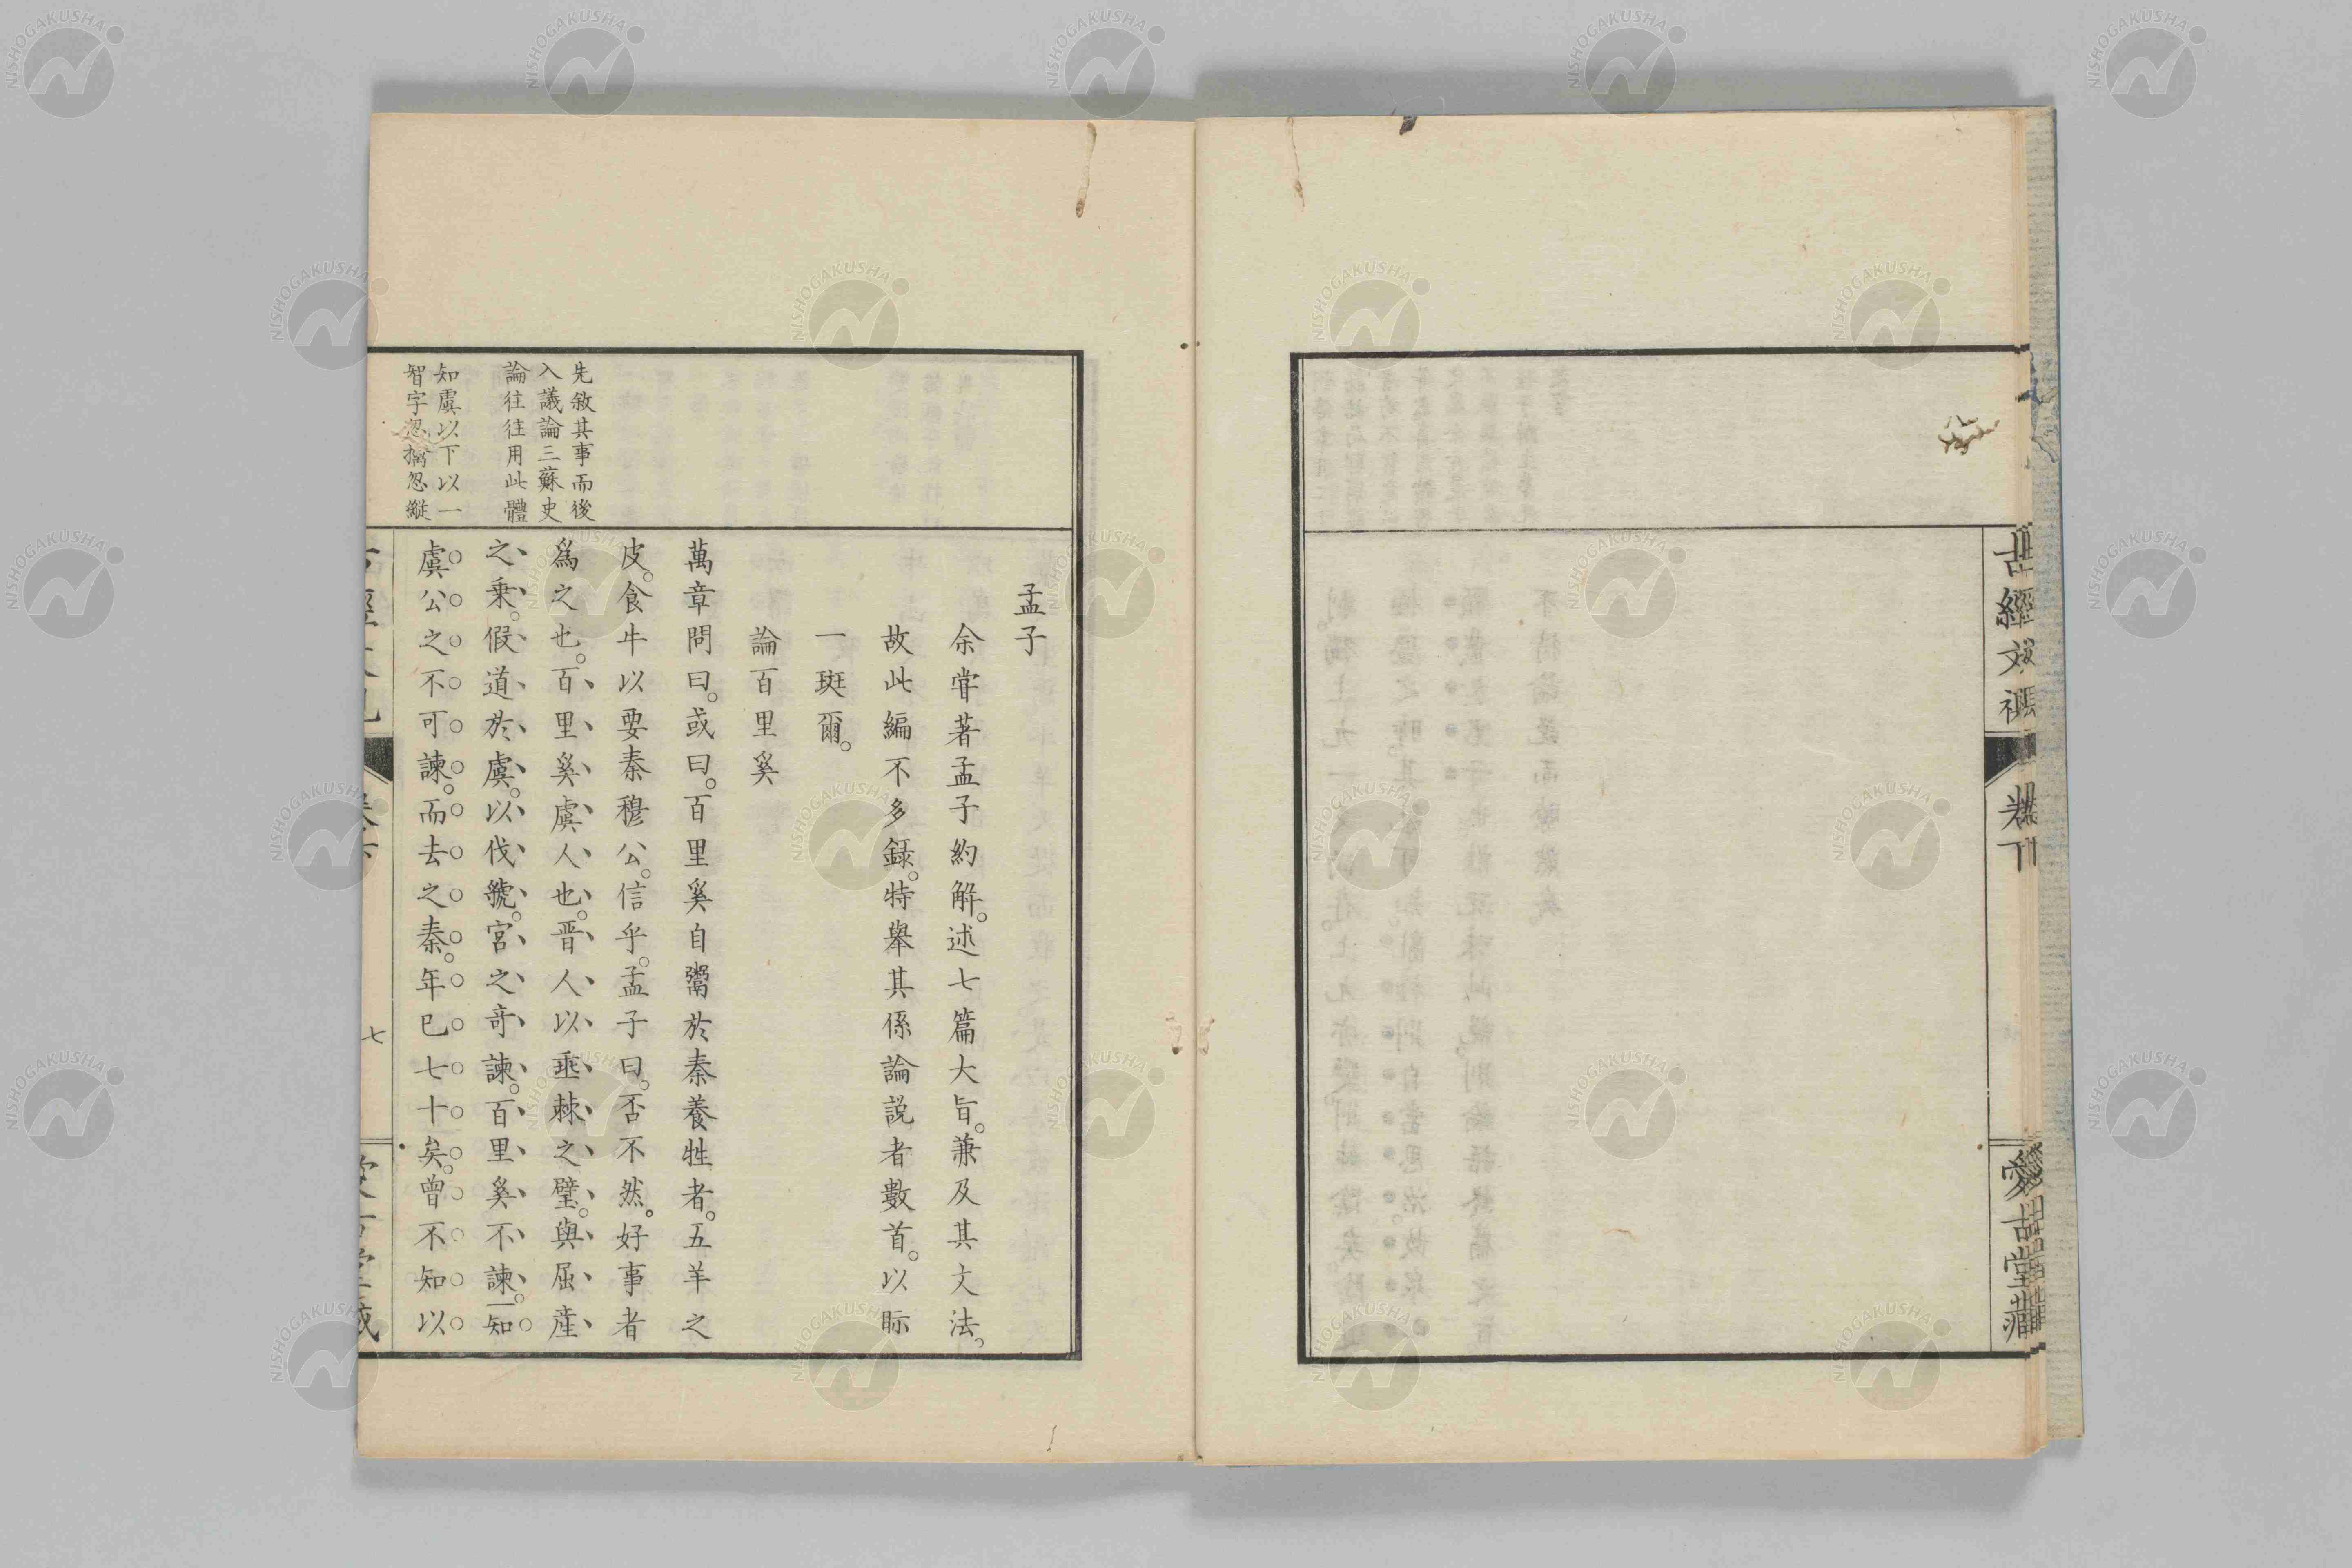 古經文視
卷下
愛古堂藏
孟子
余甞著孟子約解。述七篇大旨。兼及其文法。
故此編不多録。特舉其係論説者數首。以眎
一斑爾。
論百里奚
萬章問曰。或曰。百里奚自鬻於秦養牲者。五羊之
皮。食牛以要秦穆公。信乎。孟子曰。否不然。好事者
爲之也。百里奚虞人也。晋人以垂棘之璧。與屈産
之乗。假道於虞。以伐虢。宮之竒諫。百里奚不諫。知
虞公之不可諫。而去之秦。年已七十矣。曾不知以
先敘其事而後
入議論三蘇史
論往往用此體
知虞以下以一
智字忽擒忽縱
七
NISHOGAKUSHA